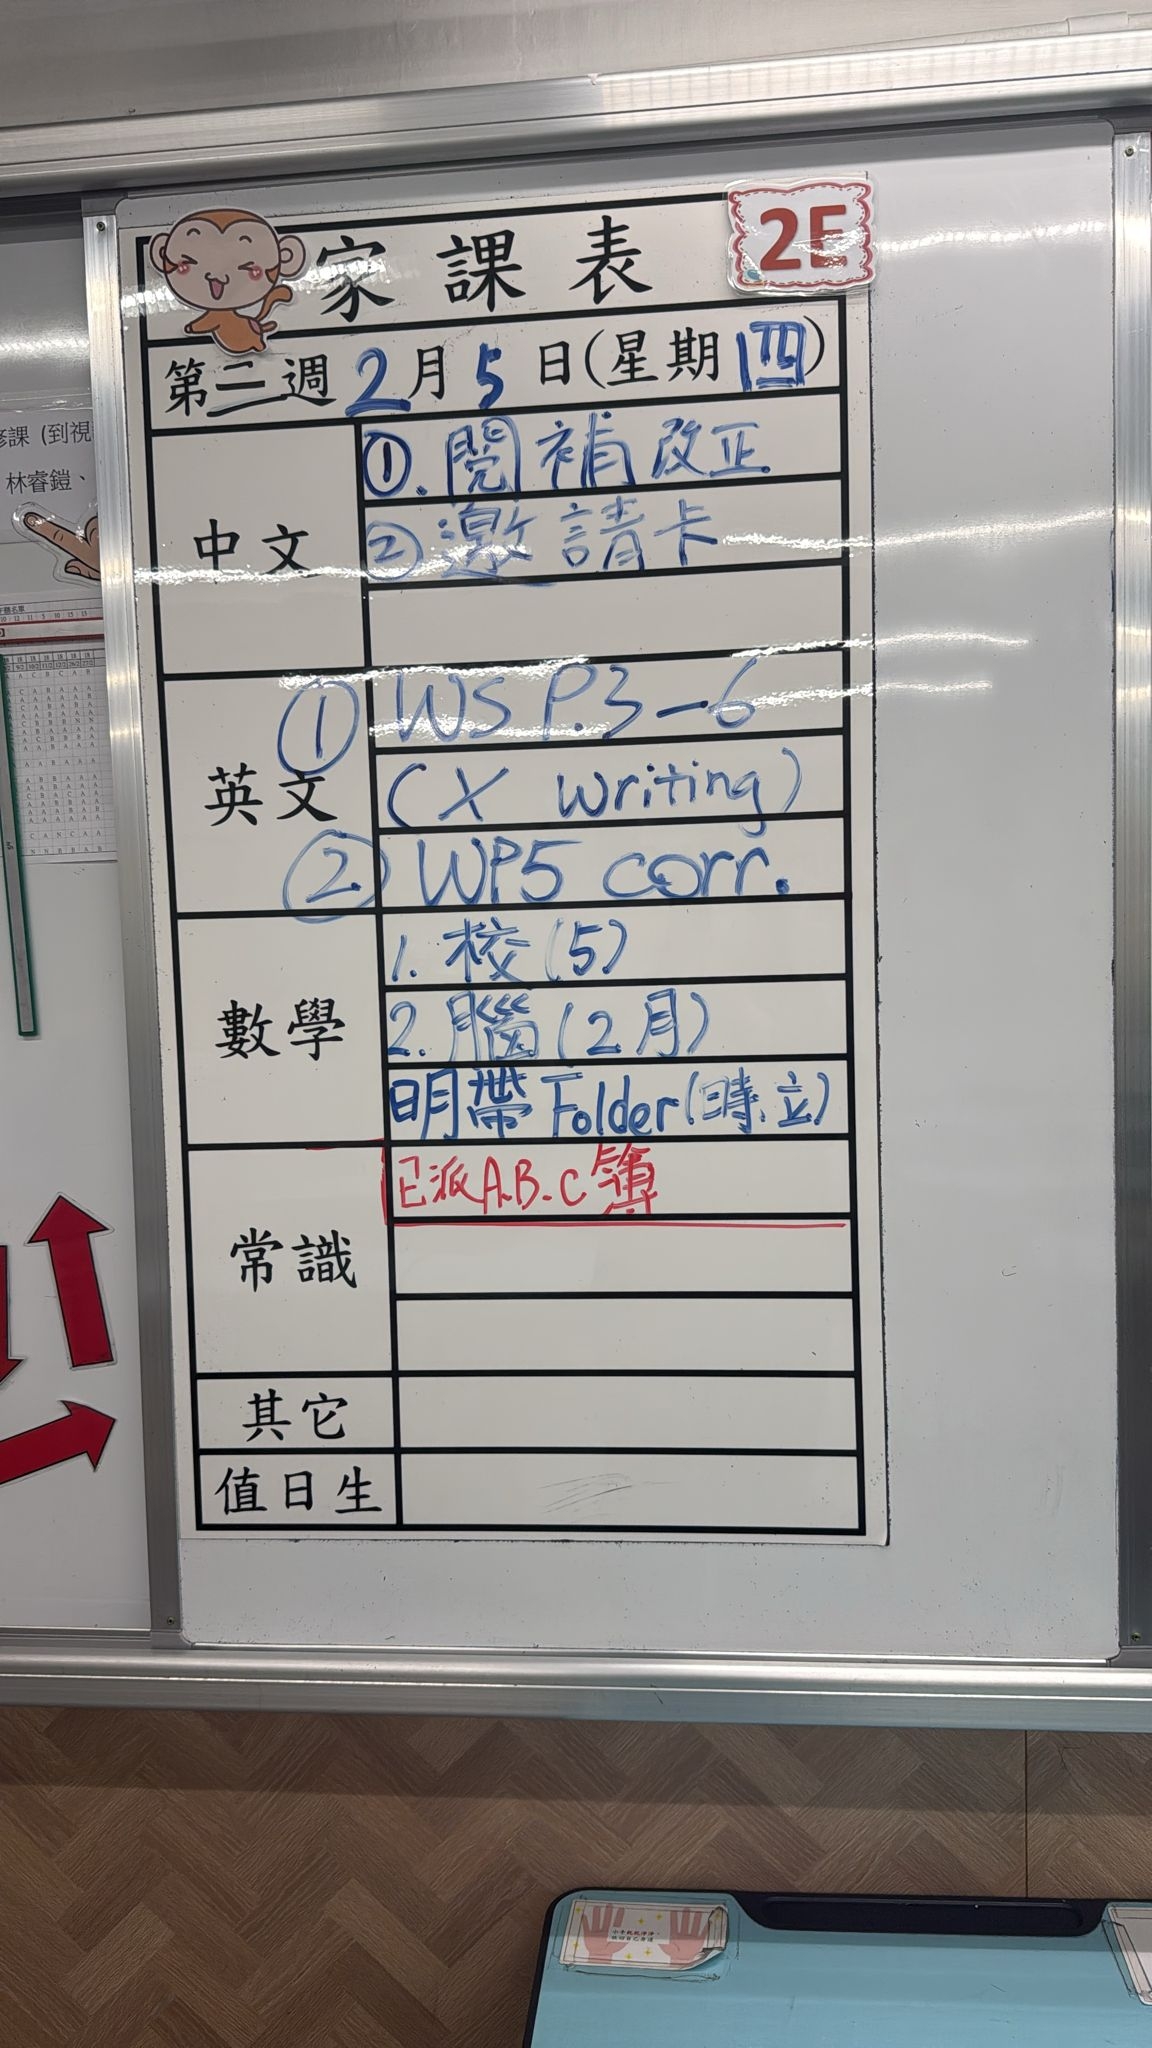 家課表
2E
第二週2月5日(星期四)
中文
①.閱補改正
②邀請卡
英文
① WS P.3-6
(X writing)
②. WP5 corr.
數學
1. 校(5)
2. 腦(2月)
明帶Folder(時.立)
常識
已派A.B.C簿
其它
值日生
課 (到視
林睿鎧、